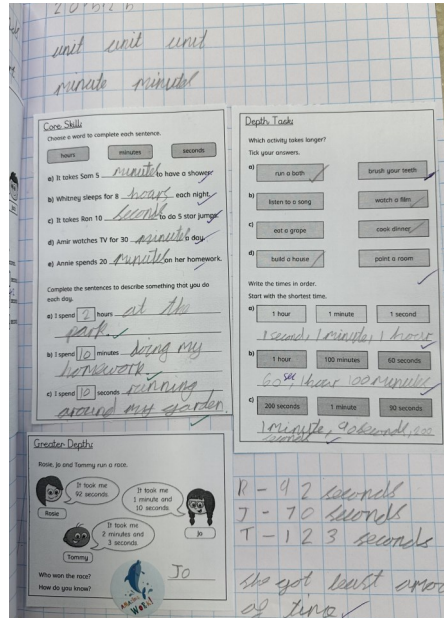 20·h·2·h
unit unit unit
minute minutes
Core Skills
Choose a word to complete each sentence.
hours minutes seconds
a) It takes Sam 5 minutes to have a shower.
b) Whitney sleeps for 8 hours each night.
c) It takes Ron 10 seconds to do 5 star jumps.
d) Amir watches TV for 30 minutes a day.
e) Annie spends 20 minutes on her homework.
Complete the sentences to describe something that you do
each day.
a) I spend 2 hours at the
park.
b) I spend 10 minutes doing my
homework
c) I spend 10 seconds running
around my garden.
Depth Task:
Which activity takes longer?
Tick your answers.
a) run a bath brush your teeth
b) listen to a song watch a film
c) eat a grape cook dinner
d) build a house paint a room
Write the times in order.
Start with the shortest time.
a) 1 hour 1 minute 1 second
1 second, 1 minute, 1 hour
b) 1 hour 100 minutes 60 seconds
60 sec 1 hour 100 minutes
c) 200 seconds 1 minute 90 seconds
1 minute, 90 seconds, 200
seconds
Greater Depth:
Rosie, Jo and Tommy run a race.
It took me
92 seconds
Rosie
It took me
1 minute and
10 seconds
Jo
It took me
2 minutes and
3 seconds
Tommy
Who won the race? Jo
How do you know?
AMAZING
WORK!
R - 92 seconds
J - 70 seconds
T - 123 seconds
she got least
of time